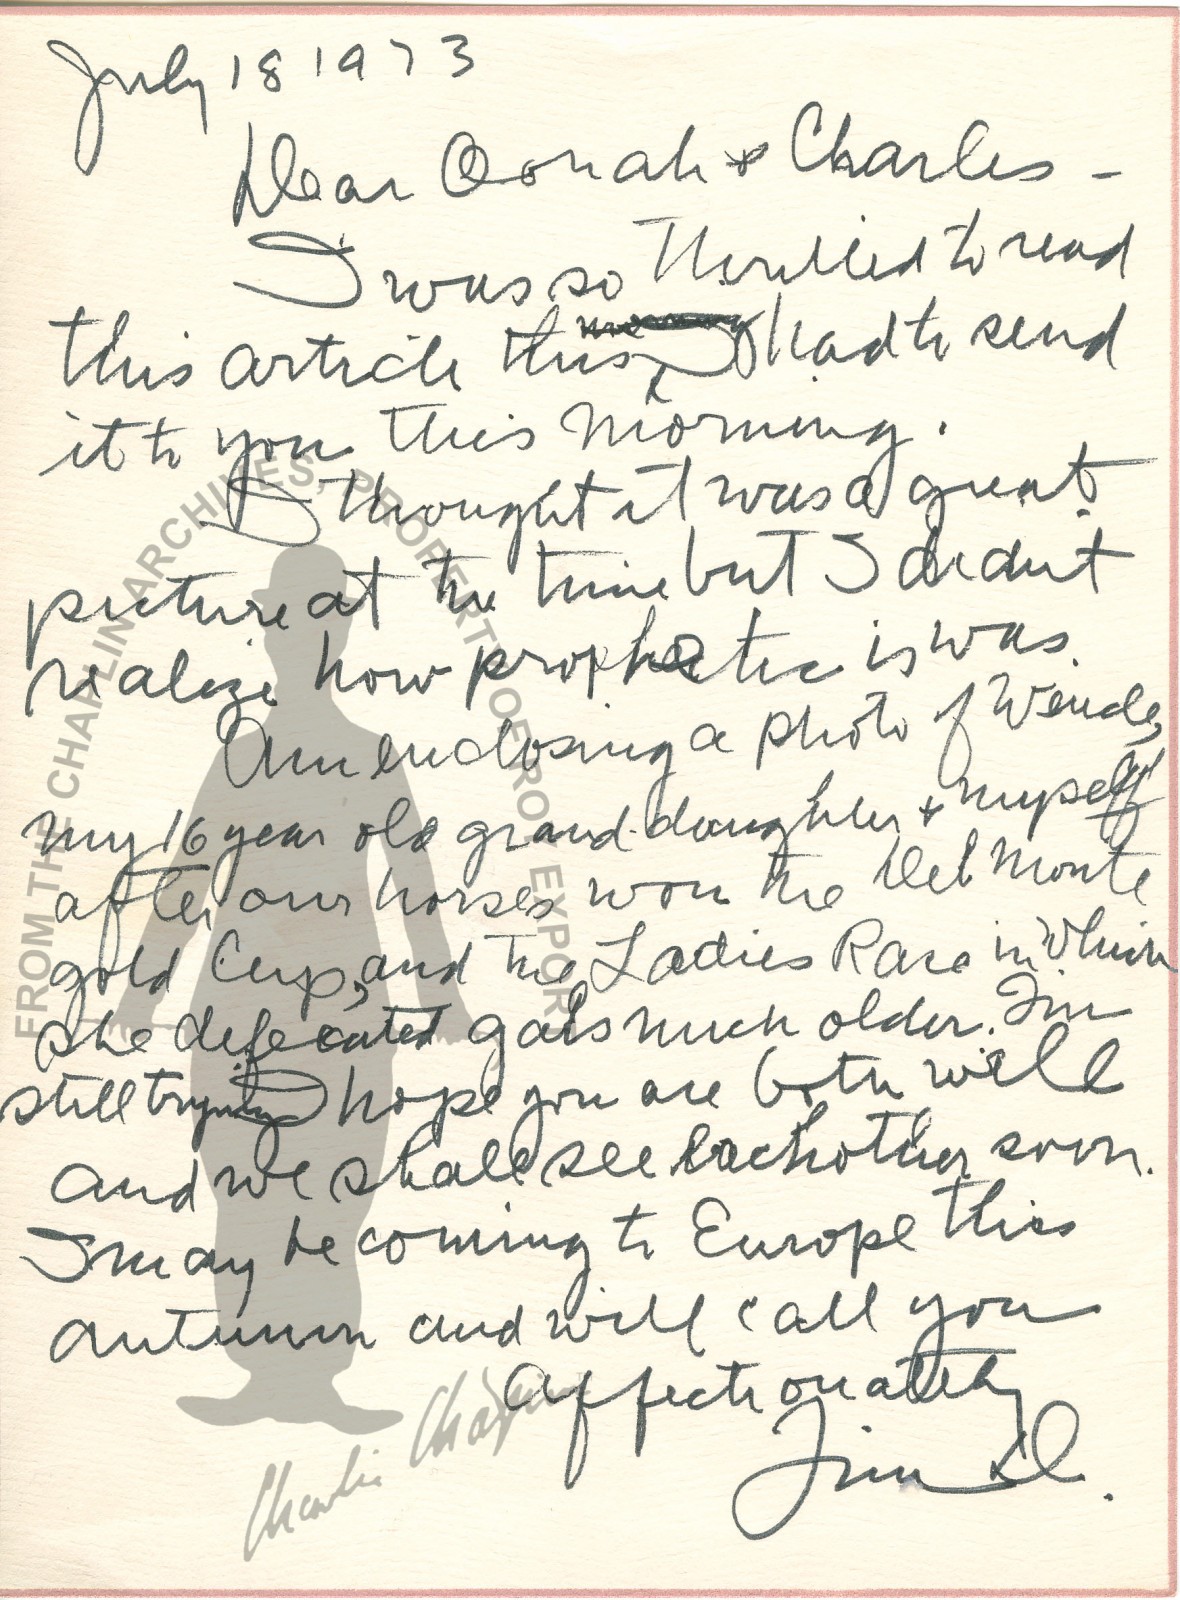 July 18 1973
Dear Oonah & Charles -
I was so thrilled to read
this article this, I had to send
it to you this morning.
I thought it was a great
picture at the time but I didnt
realize how prophetic is was.
Am enclosing a photo of Wende,
my 16 year old grand-daughter & myself
after our horses won the Del Monte
gold Cup, and the Ladies Race in which
she defeated gals much older. I'm
still trying I hope you are both well
and we shall see each other soon.
I may be coming to Europe this
autumn and will call you
Affectionately
Tim
FROM THE CHAPLIN ARCHIVES, PROPERTY OF ROY EXPORT
Charlie Chaplin